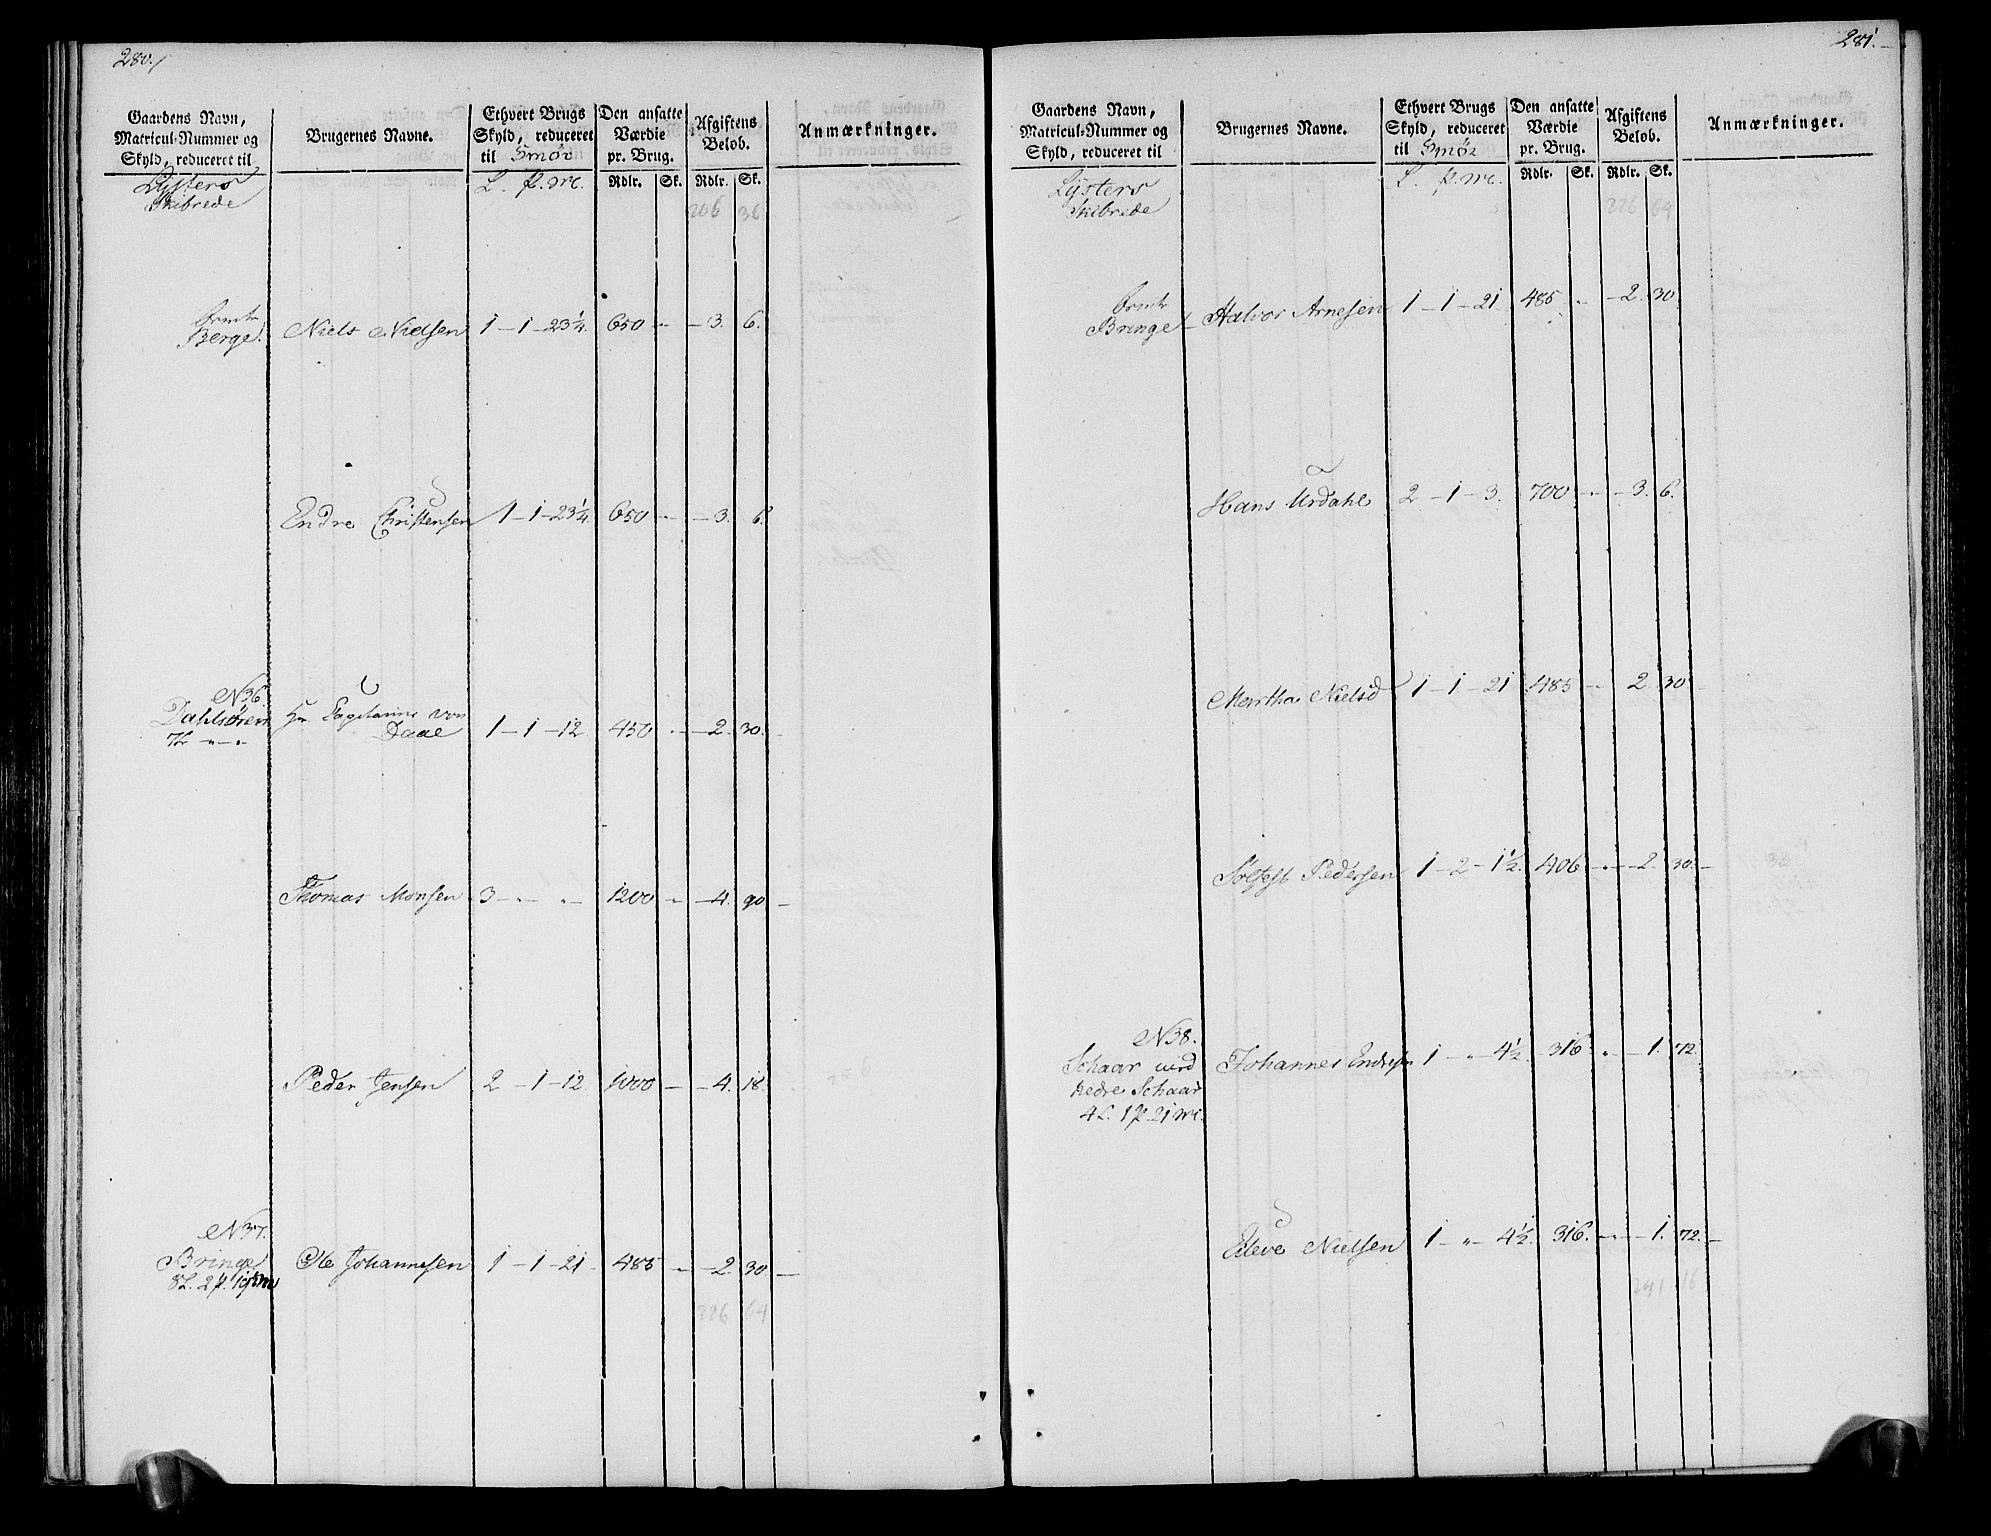 280./
Gaardens Navn,
Matricul-Nummer og
Skyld, reduceret til
Brugernes Navne.
Ethvert Brugs
Skyld, reduceret
til Smör
Den ansatte
Værdie
pr. Brug.
Rdlr. Sk.
Afgiftens
Beløb.
Rdlr. Sk.
Anmærkninger.
Lysters
Skibrede
L. p. mc.
206 36
Berge Niels Nielsen 1-1-23¼ 650 - -3. 6.
Endre Christensen 1-1-23¼ 650 - -3. 6.
N36.
Dahlsören Hr. Capitaine von
Daae 1-1-12 450 - -2. 30.
Thomas Monsen 3 - " - " - 1200 - -4. 90 -
Peder Jensen 2-1-12 1000 - -4. 18.
N37.
Bringe Ole Johannesen 1-1-21 485 - -2. 30. -
226 64
281.
Gaardens Navn,
Matricul-Nummer og
Skyld, reduceret til
Brugernes Navne.
Ethvert Brugs
Skyld, reduceret
til Smör
Den ansatte
Værdie
pr. Brug.
Rdlr. Sk.
Afgiftens
Beløb.
Rdlr. Sk.
Anmærkninger.
Lysters
Skibrede
L. p. mc.
226 64
Bringe Halvor Arnesen 1-1-21 485 - -2. 30.
Hans Urdahl 2-1-3. 700 - -3. 6.
Merrtha Nielsd 1-1-21 485 - 2. 30
Pedersen 1-2-1½. 406 - -2. 30. -
N38.
Schaar med Johannes Endresen 1 - " - 4½. 316 " -1. 72.
nedre Schaar
4L. 1p 21 mc.
Eleve Nielsen 1 - " - 4½. 316. - -1. 72. -
241 16